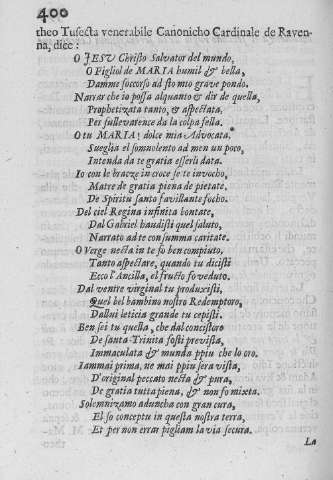 400
theo Tusecta venerabile Canonicho Cardinale de Raven-
na, dice:
O JESU Christo Salvator del mundo,
O Figliol de MARIA humil & bella,
Damme soccorso ad sto mio grave pondo.
Narrar che io possa alquanto & dir de quella,
Prophetizata tanto, & aspectata,
Per sullevarence da la colpa fella.
O tu MARIA! dolce mia Advocata,
Sueglia el somnolento ad men un poco,
Intenda da te gratia esserli data.
Io con le bracze in croce se te invocho,
Matre de gratia piena de pietate,
De Spiritu santo favillante focho.
Del ciel Regina infinita bontate,
Dal Gabriel haudisti quel saluto,
Narrato ad te con summa caritate.
O Verge necta in te fo ben compiuto,
Tanto aspectare, quando tu dicisti
Ecco l'Ancilla, el fructo fo veduto.
Dal ventre virginal tu produxisti,
Quel bel bambino nostro Redemptoro,
Dallui leticia grande tu cepisti.
Ben sei tu quella, che dal concistoro
De santa Trinita fosti previsita,
Immaculata & munda ppiu che lo oro.
Iammai prima, ne mai ppiu sera vista,
D'original peccato necta & pura,
De gratia tutta piena, & non fo mixta.
Solemnizamo aduncha con gran cura,
El so conceptu in questa nostra terra,
Et per non errar pigliam la via secura.
La